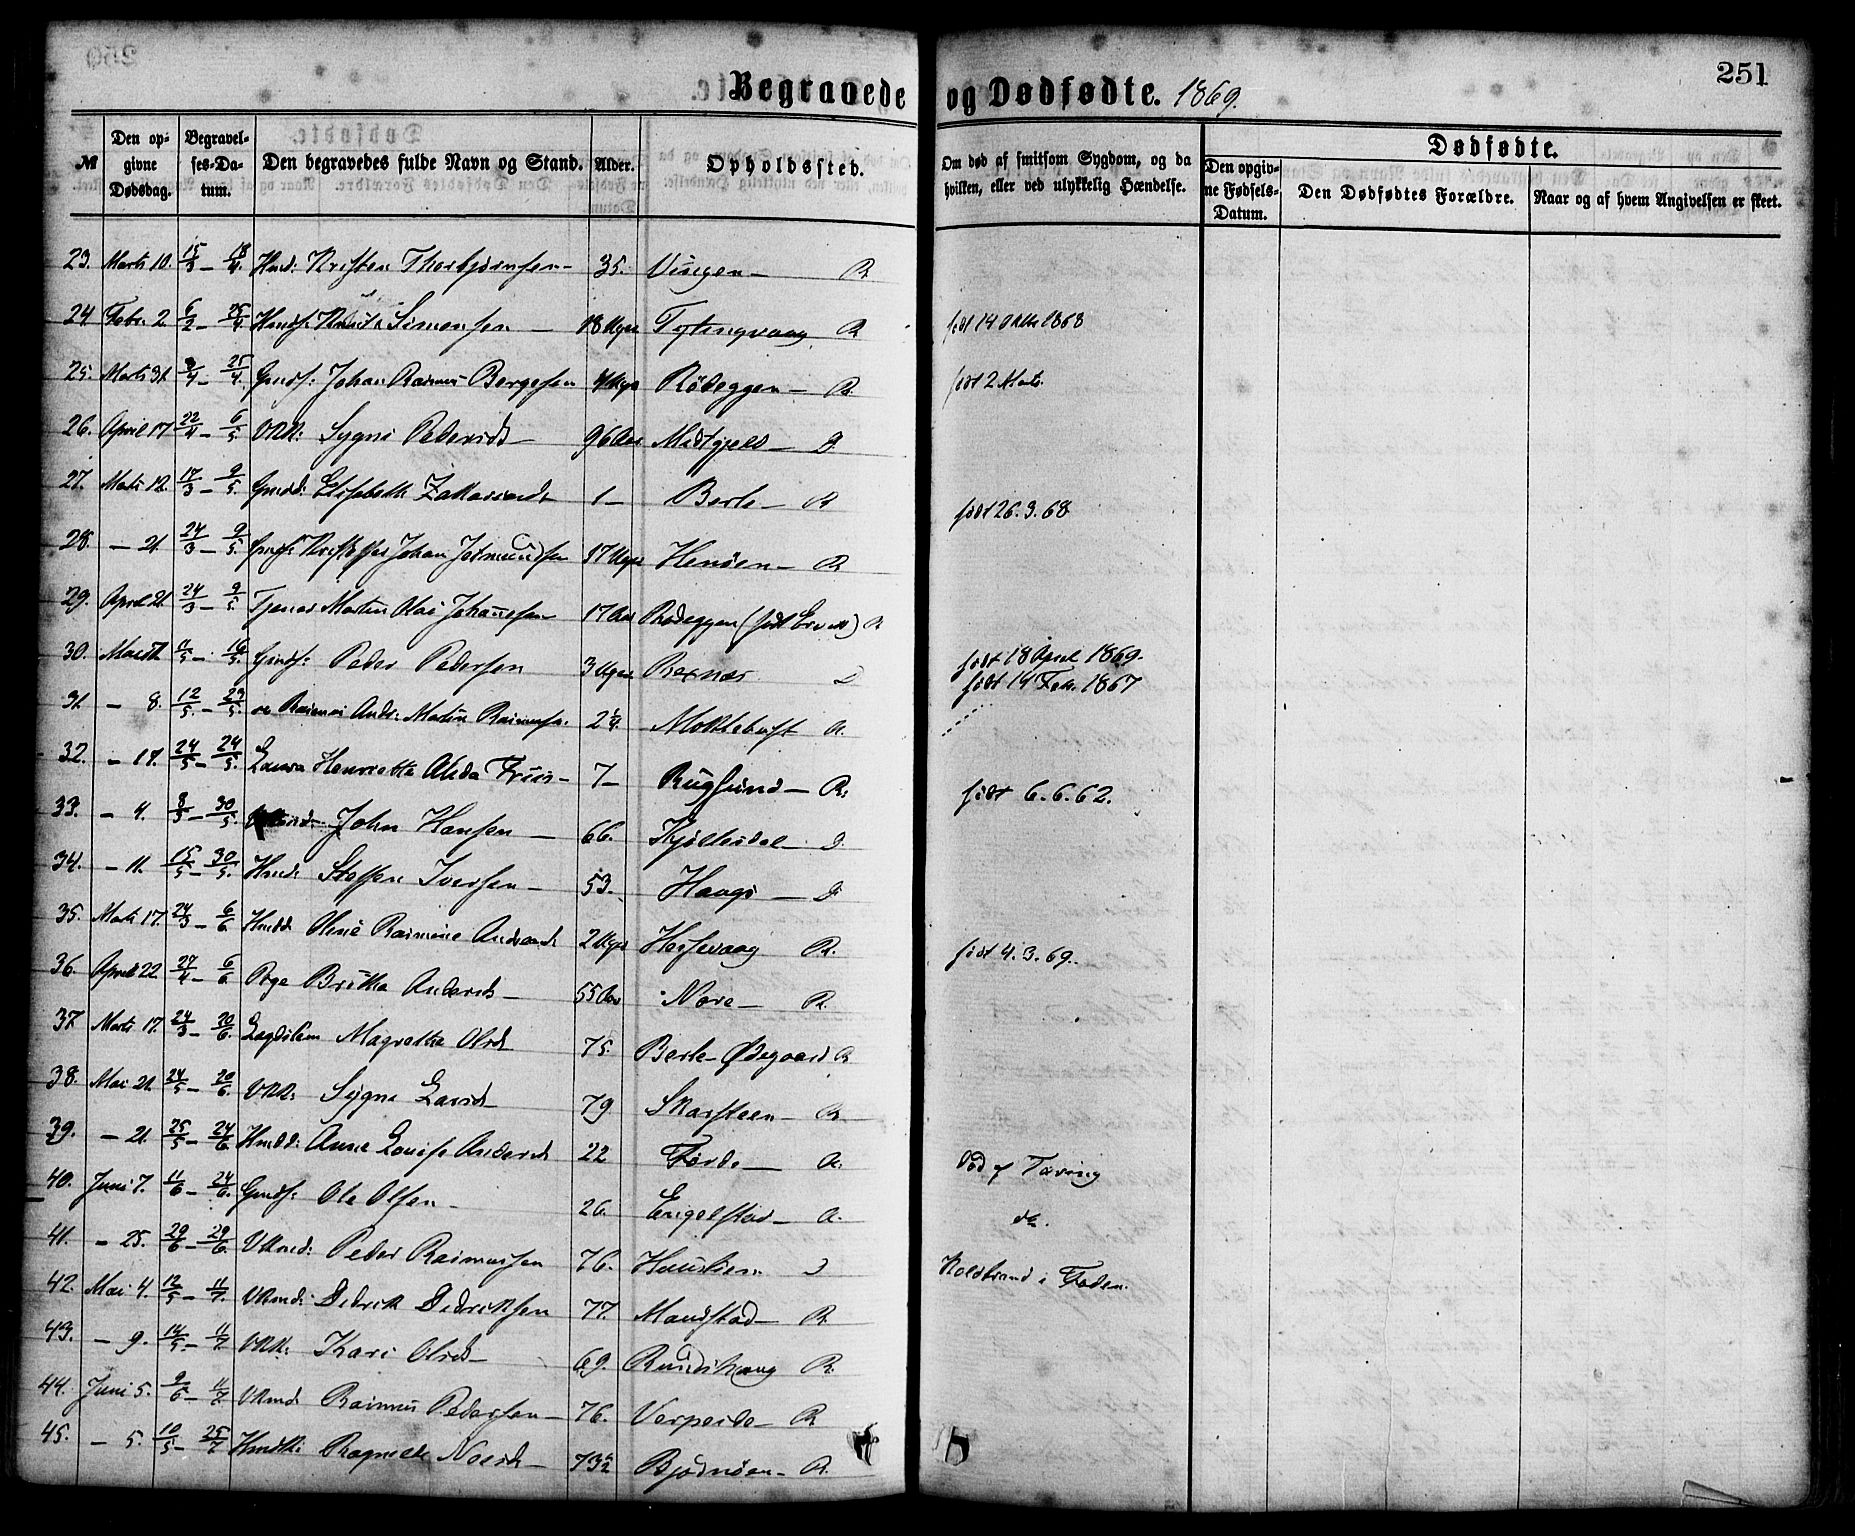 Begravede og Dødfødte. 1869.
251
№ Den opgivne Dødsdag. Begravelses-Datum. Den begravedes fulde Navn og Stand. Alder. Opholdssted. Om død af smitsom Sygdom, og da hvilken, eller ved ulykkelig Hændelse. Dødfødte.
Den opgivne Fødsels-Datum. Den Dødfødtes Forældre. Naar og af hvem Angivelsen er skeet.
23. Marts 10. 15/3 – 18/4. Kristen Thorbjørnsen – 35. Vingen – R
24 Febr. 2 6/2 – 25/4 Simonsen – 18 Uger Tytingvaag R født 14 1868
25. Marts 31. 3/4 – 25/4. Gmds: Johan Rasmus Børgesen 4 Uger Rødeggen – R født 2 Marts.
26. April 17. 22/4 – 6/5. Sygni Pedersd – 96 Aar Midtgjels – D
27. Marts 12. 17/3 – 9/5. Elisabeth Zakariasd 1 – Berle – R født 26.3.68
28. – 21. 24/3 – 9/5. Kristoffer Johan Jetmundsen 17 Uger Henøen – R
29. April 21. 24/3 – 9/5 Tjener Martin Olai Johannesen 17 Aar Rødeggen (født) R
30. 11/5 – 16/5. Gmds: Peder Pedersen 3 Uger D født 18 April 1869.
31. – 8. 12/5 – 23/5. Rasmus Andr: Martin Rasmussen 2 1/4. Moldebust R. født 14 Feb. 1867
32. – 17. 24/5 – 24/5. Laura Henriette Alida Friis – 7 – Rugsund – R. født 6.6.62.
33. – 4. 8/5 – 30/5. John Hansen – 66. Kjøllesdal – D.
34. – 11. 15/5 – 30/5. Hmd: Steffen Iversen – 53. Haugs – D
35. Marts 17. 24/3 – 6/6 Hmdd: Oline Rasmine Andersd 2 Uger Hessevaag R. født 4.3.69.
36. April 22. 27/4 – 6/6. Pige Britha Andersd – 55 Aar Nore – R.
37 Marts 17. 24/3 – 20/6. Lægdslem Magrethe Olsd 75. Berle – Ødegaard R
38. Mai 21. 24/5 – 20/6. Sygni Larsd 79 Skarsteen – R
39. – 21. 25/5 – 24/6. Hmdd: Anne Lovise Andersd 22 Førde – R. Død af Tæring
40. Juni 7. 11/6 – 24/6. Gmds: Ole Olsen – 26. Engelstad – R. do.
41. – 25. 29/6 – 29/6. Peder Rasmussen 76. D Koldbrand i Foden.
42. Mai 4. 12/5 – 11/7. Didrik Didriksen 77. Maudstad – R
43. – 9. 14/5 – 11/7 Kari Olsd – 69. Rundehaug R.
44. Juni 5. 9/6 – 11/7 Rasmus Pedersen – 76. Verpeide – R
45. – 5. 10/5 – 25/7 Ragnilde Nilsd – Bjødnøen – R.